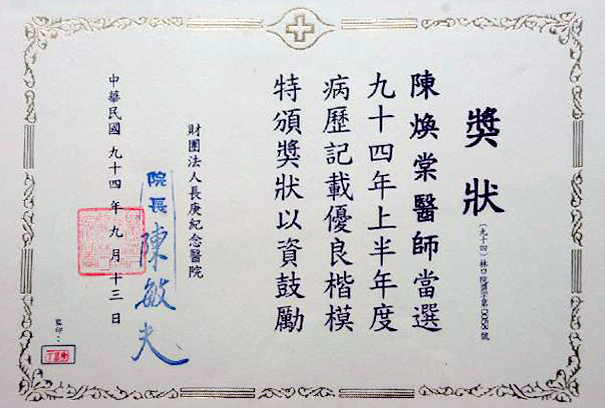 獎狀
(九十四)林口院證字第00058號
陳煥棠醫師當選
九十四年上半年度
病歷記載優良楷模
特頒獎狀以資鼓勵
財團法人長庚紀念醫院
院長 陳敏夫
中華民國九十四年九月十三日
監印：